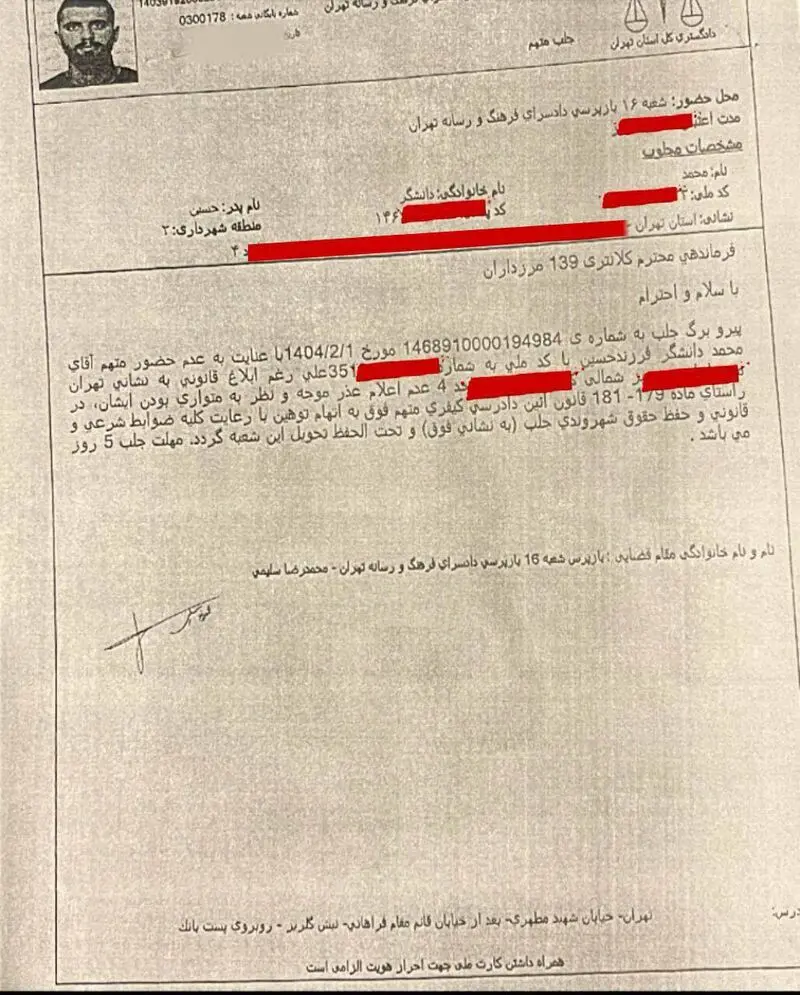 شماره بایگانی شعبه : 0300178
دادگستری کل استان تهران
جلب متهم
محل حضور: شعبه ۱۶ بازپرسي دادسرای فرهنگ و رسانه تهران
مدت
مشخصات مطلوب
نام: محمد
نام خانوادگی: دانشگر
نام پدر: حسین
کد ملی:
کد
منطقه شهرداری: ۲
نشانی: استان تهران
فرماندهي محترم کلانتری 139 مرزداران
با سلام و احترام
پیرو برگ جلب به شماره ی 1468910000194984 مورخ 1404/2/1با عنایت به عدم حضور متهم آقای
محمد دانشگر فرزندحسین با کد ملي به شماره 351علي رغم ابلاغ قانوني به نشاني تهران
شمالی 4 عدم اعلام عذر موجه و نظر به متواري بودن ایشان، در
راستاي ماده 179- 181 قانون آئین دادرسي کیفري متهم فوق به اتهام توهین با رعایت کلیه ضوابط شرعي و
قانوني و حفظ حقوق شهروندي جلب (به نشاني فوق) و تحت الحفظ تحویل این شعبه گردد. مهلت جلب 5 روز
مي باشد .
نام و نام خانوادگی مقام قضایی : بازپرس شعبه 16 بازپرسي دادسرای فرهنگ و رسانه تهران - محمدرضا سلیمي
تهران- خیابان شهید مطهری- بعد از خیابان قائم مقام فراهانی- نبش گلریز - روبروی پست بانك
همراه داشتن کارت ملی جهت احراز هویت الزامی است